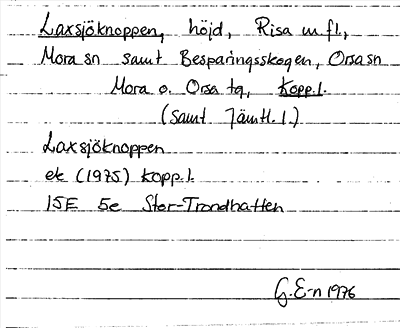 Laxsjöknoppen, höjd, Risa m.fl.,
Mora sn samt Besparingsskogen, Orsa sn
Mora o. Orsa tg, Kopp.l.
(samt Jämtl.l.)
Laxsjöknoppen
ek (1975) Kopp.l.
15E 5e Stor-Trondhatten
G.E-n 1976